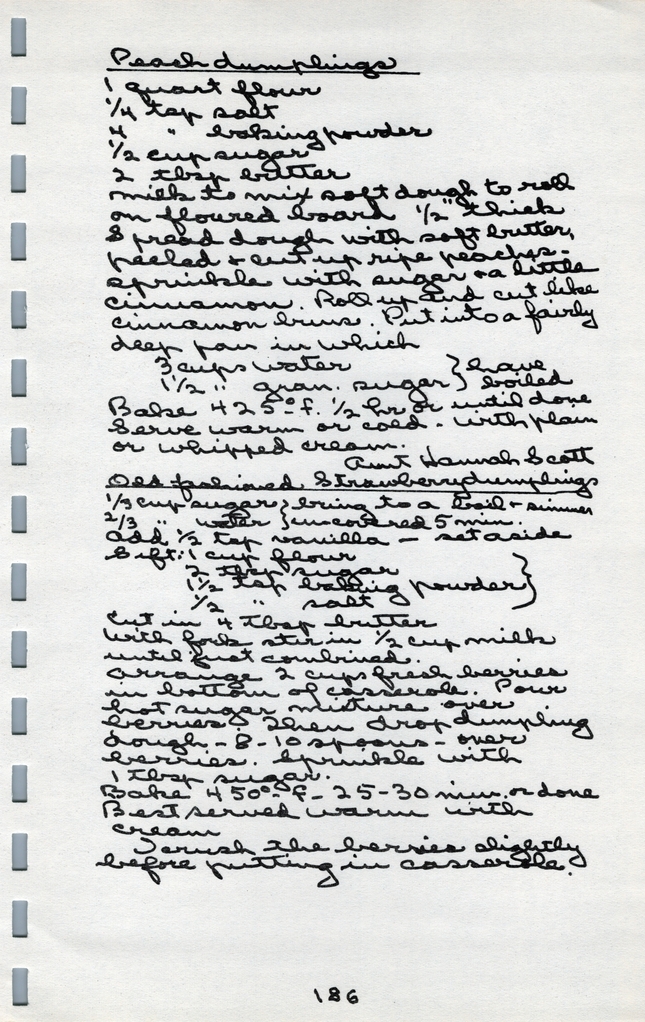 Peach dumplings
1 quart flour
1/4 tsp salt
4 " baking powder
1/2 cup sugar
2 tbsp butter
milk to mix soft dough to roll
on floured board 1/2" thick
Spread dough with soft butter,
peeled + cut up ripe peaches -
sprinkle with sugar + a little
cinnamon. Roll up and cut like
cinnamon buns. Put into a fairly
deep pan in which
3 cups water } have
1 1/2 " gran. sugar } boiled
Bake 425° f. 1/2 hr or until done
Serve warm or cold - with plain
or whipped cream.
Aunt Hannah Scott
Old fashioned Strawberry dumplings
1/3 cup sugar } bring to a boil + simmer
2/3 " water } uncovered 5 min.
add 1/2 tsp vanilla - set aside
Sift: 1 cup flour
2 tbsp sugar
1 1/2 tsp baking powder }
1/2 " salt
Cut in 4 tbsp butter
With fork stir in 1/2 cup milk
until just combined.
arrange 2 cups fresh berries
in bottom of casserole. Pour
hot sugar mixture over
berries. Then drop dumpling
dough - 8-10 spoons - over
berries. Sprinkle with
1 tbsp sugar.
Bake 450° f - 25-30 min. or done
Best served warm with
cream
I crush the berries slightly
before putting in casserole.
186